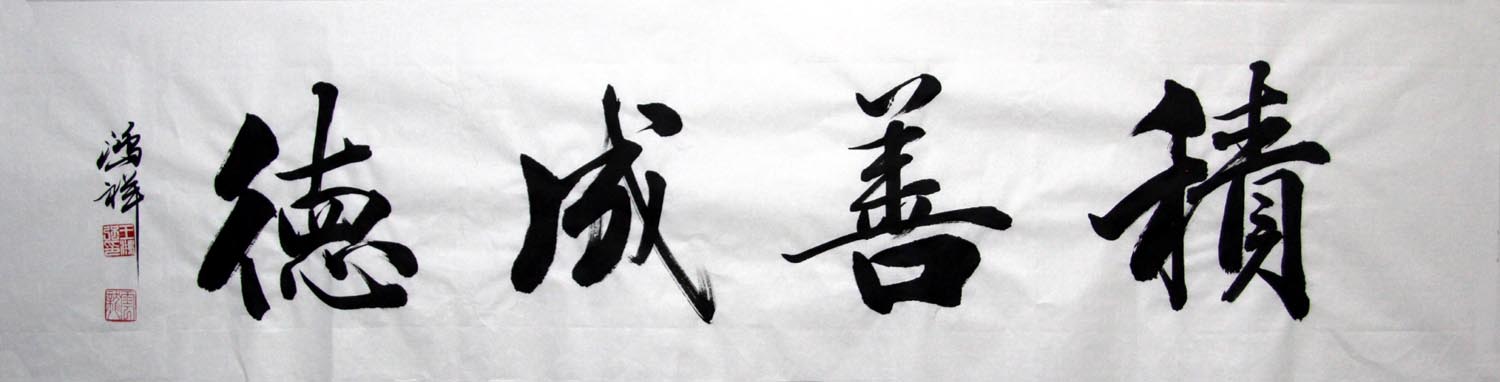 積善成德
鴻祥